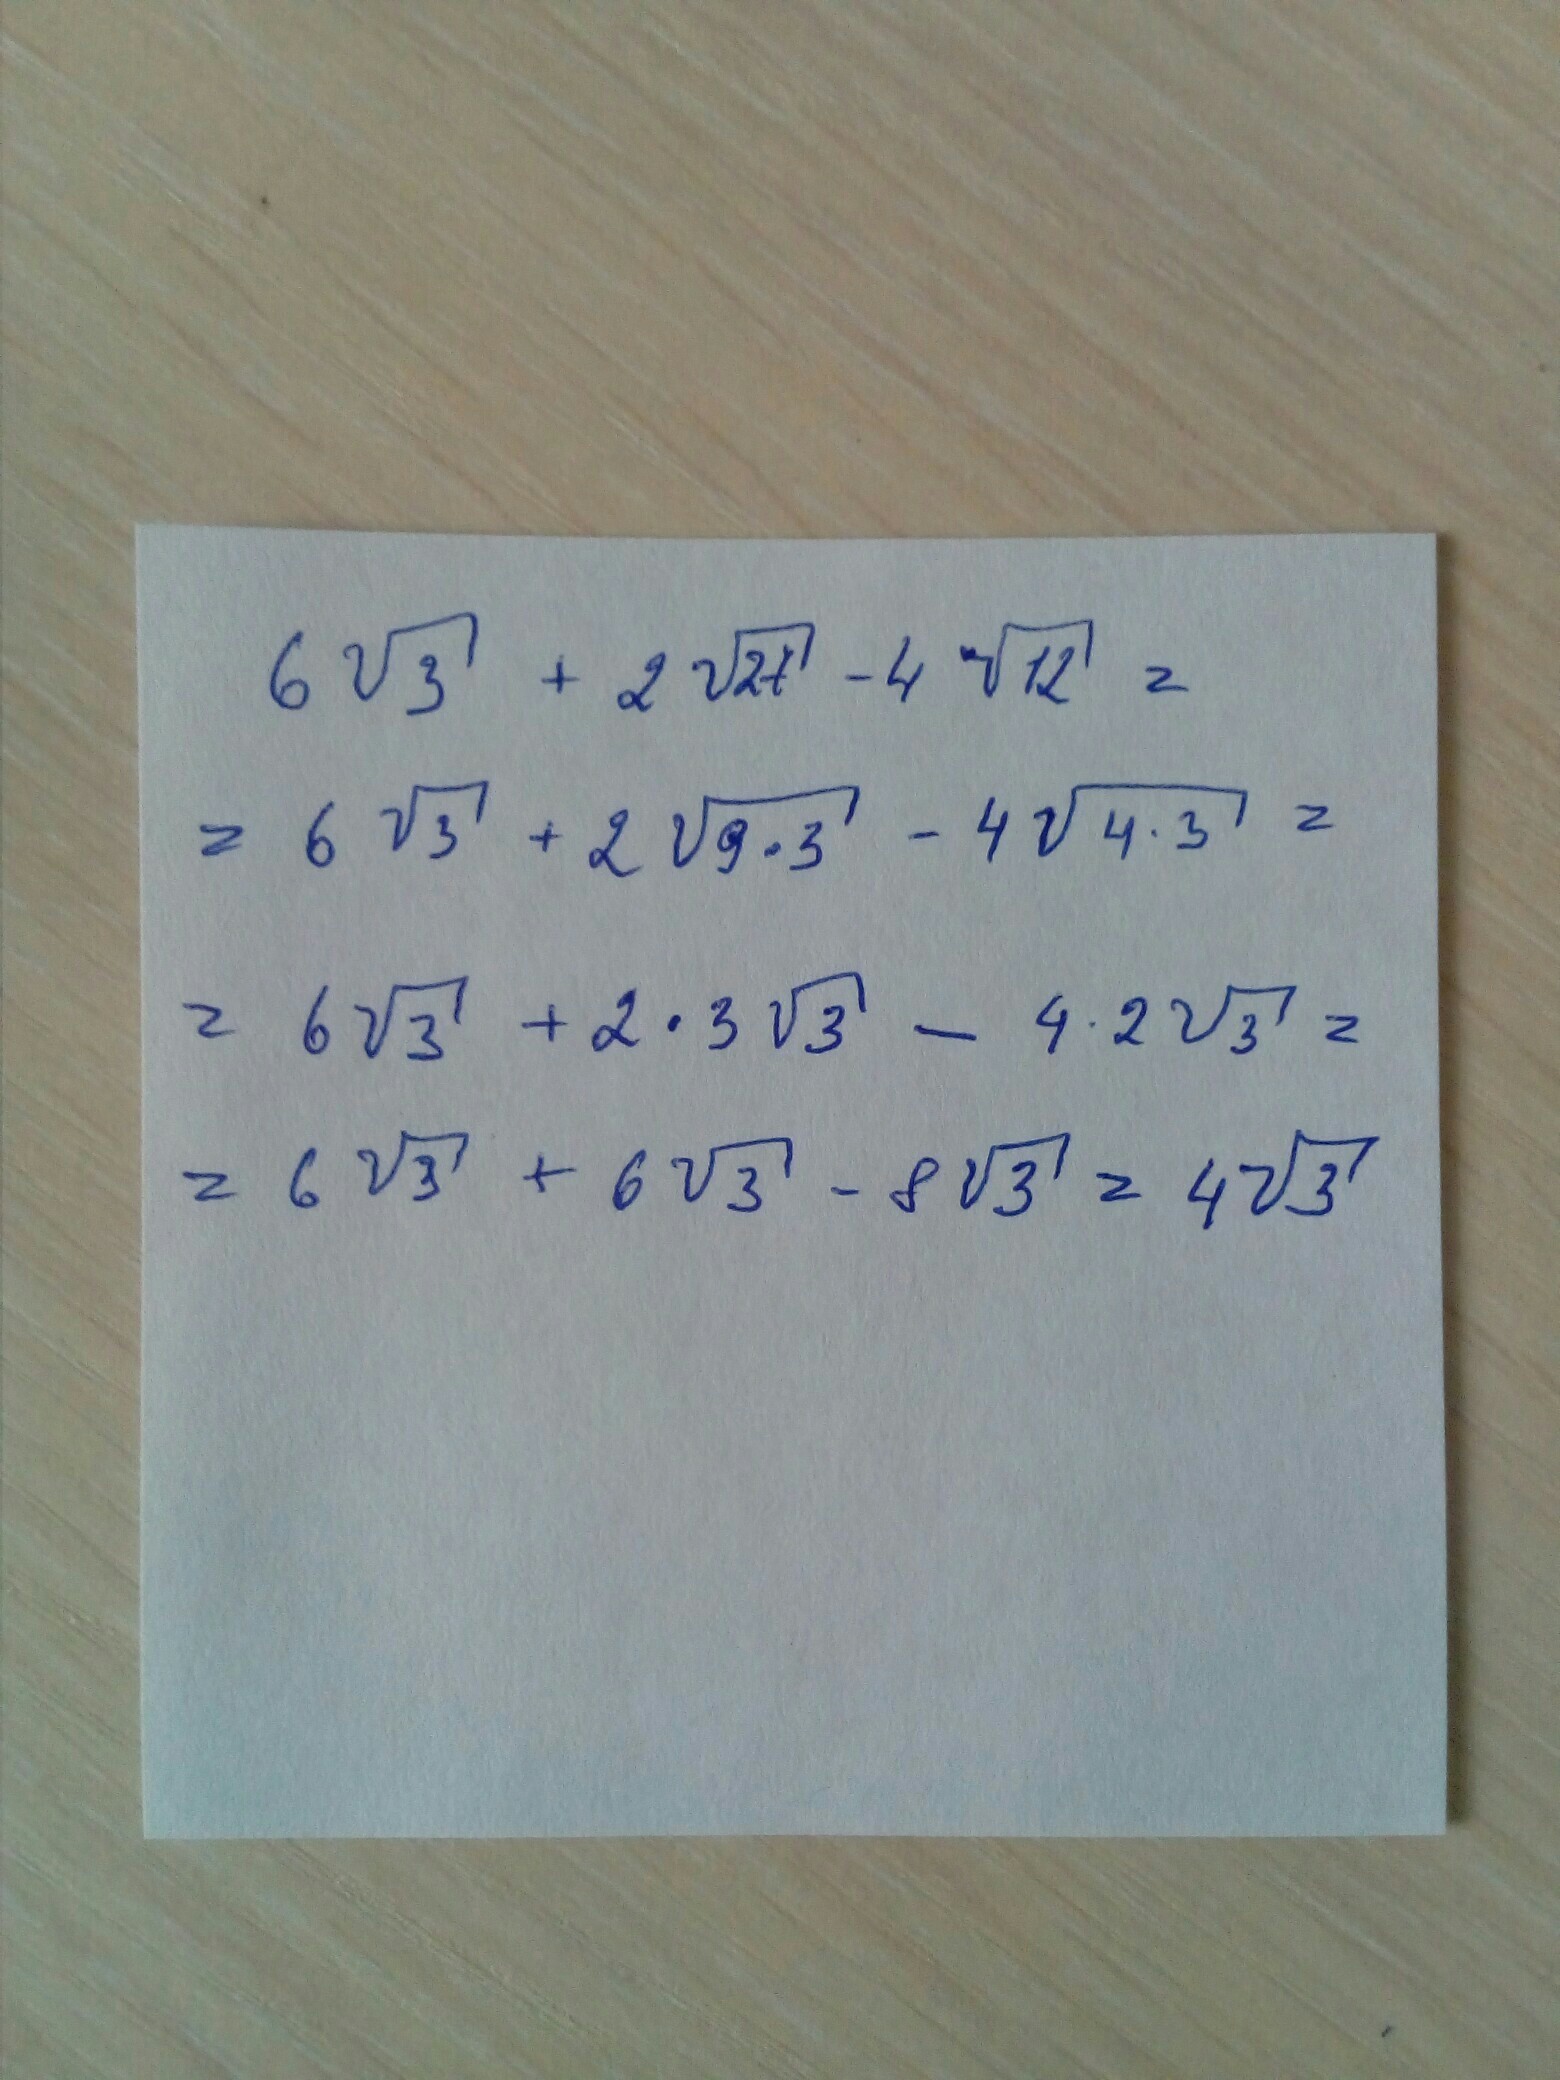 6√3 + 2√27 - 4√12 =
= 6√3 + 2√9·3 - 4√4·3 =
= 6√3 + 2·3√3 - 4·2√3 =
= 6√3 + 6√3 - 8√3 = 4√3